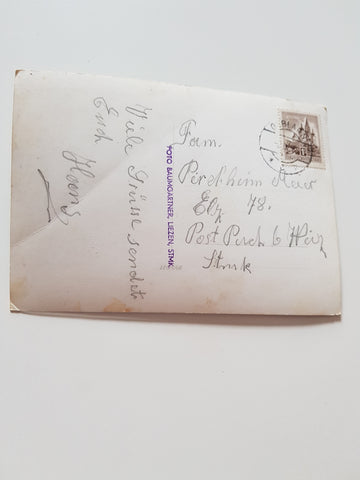 Viele Grüsse sendet
Euch Hans
FOTO BAUMGARTNER, LIEZEN, STMK.
Fam.
Elz 78.
Post Perch b Weiz
Stmk